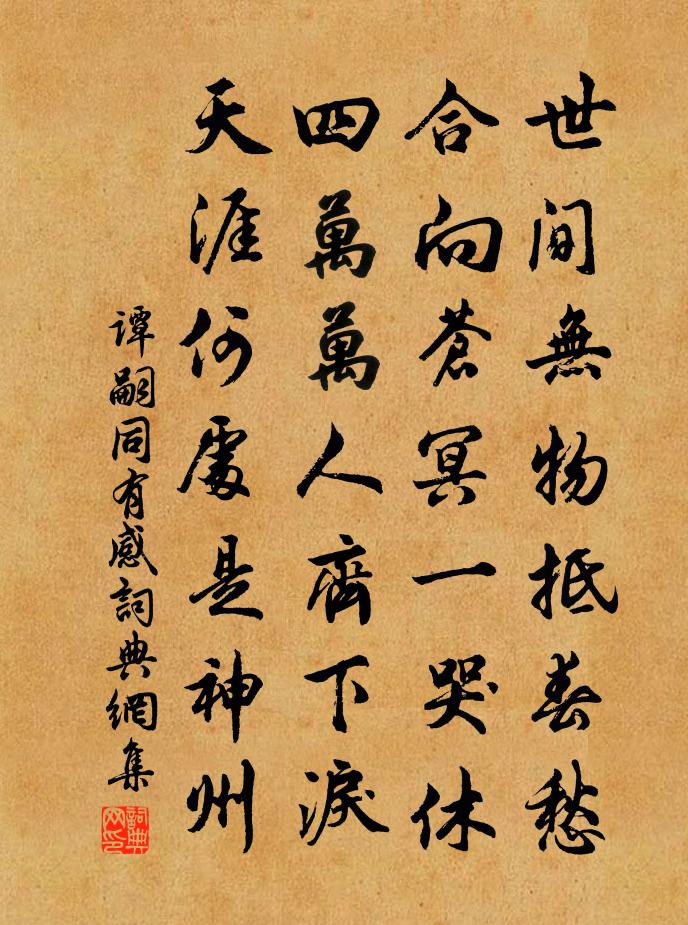 世間無物抵春愁
合向蒼冥一哭休
四萬萬人齊下淚
天涯何處是神州
譚嗣同有感詞典網集
詞典网印